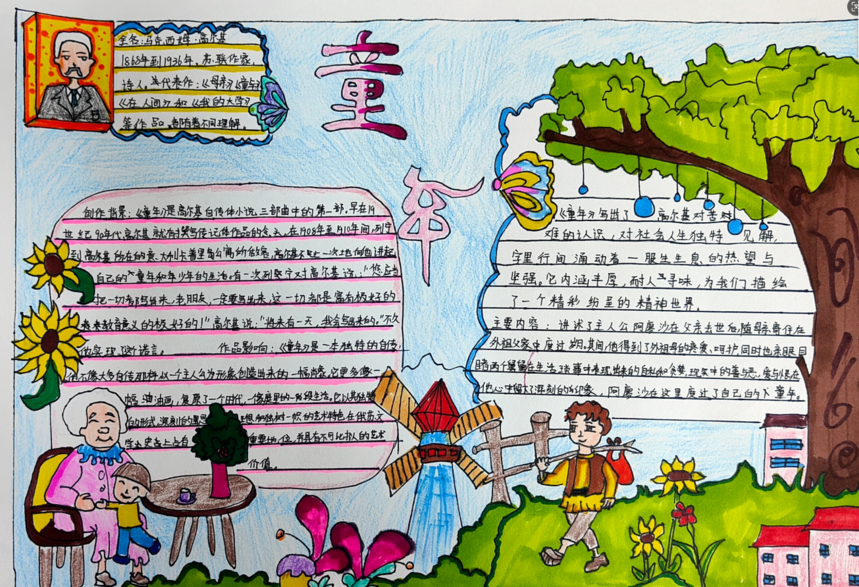 童年
全名：马克西姆·高尔基
1868年到1936年，苏联作家，
诗人。代表作：《母亲》《童年》
《在人间》和《我的大学》
等作品，都有着不同理解。
创作背景：《童年》是高尔基自传体小说三部曲中的第一部。早在19
世纪90年代，高尔基就有撰写传记体作品的念头。在1908年至1910年间，列宁
到高尔基所在的意大利卡普里岛的寓所做客，高尔基不止一次地向他讲起
自己的童年和年少年的生活。有一次列宁对高尔基说："您应当
把一切都写出来，老朋友，一定要写出来，这一切都是富有极好的
教育意义的极好的！"高尔基说："将来有一天，我会写出来的。"不久
他实现了诺言。 作品影响：《童年》是一本独特的自传，
它不像大多自传那样以一个主人公为形象创造出来的一幅肖像，它更多像一
幅油画，复原了一个时代，一个家庭里的一段生活
价值。
《童年》写出了高尔基对苦
难的认识，对社会人生独特见解，
字里行间涌动着一股生生不息的热望与
坚强。它内涵丰厚，耐人寻味，为我们描绘
了一个精彩纷呈的精神世界。
主要内容：讲述了主人公阿廖沙在父亲去世后，随母亲寄住在
外祖父家中度过 期间，他得到了外祖母的疼爱、呵护，同时也亲眼目
睹两个舅舅在生活琐事中表现出来的自私和贪婪，现实中的善与恶，爱与恨在
他心中留下了深刻的印象，阿廖沙在这里度过了自己的 童年。